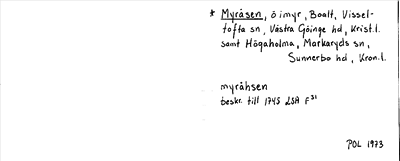 * Myråsen, ö imyr, Boalt, Vissel-
tofta sn, Västra Göinge hd, Krist.l.
samt Högaholma, Markaryds sn,
Sunnerbo hd, Kron.l.
myråhsen
beskr. till 1745 LSA F31
POL 1973